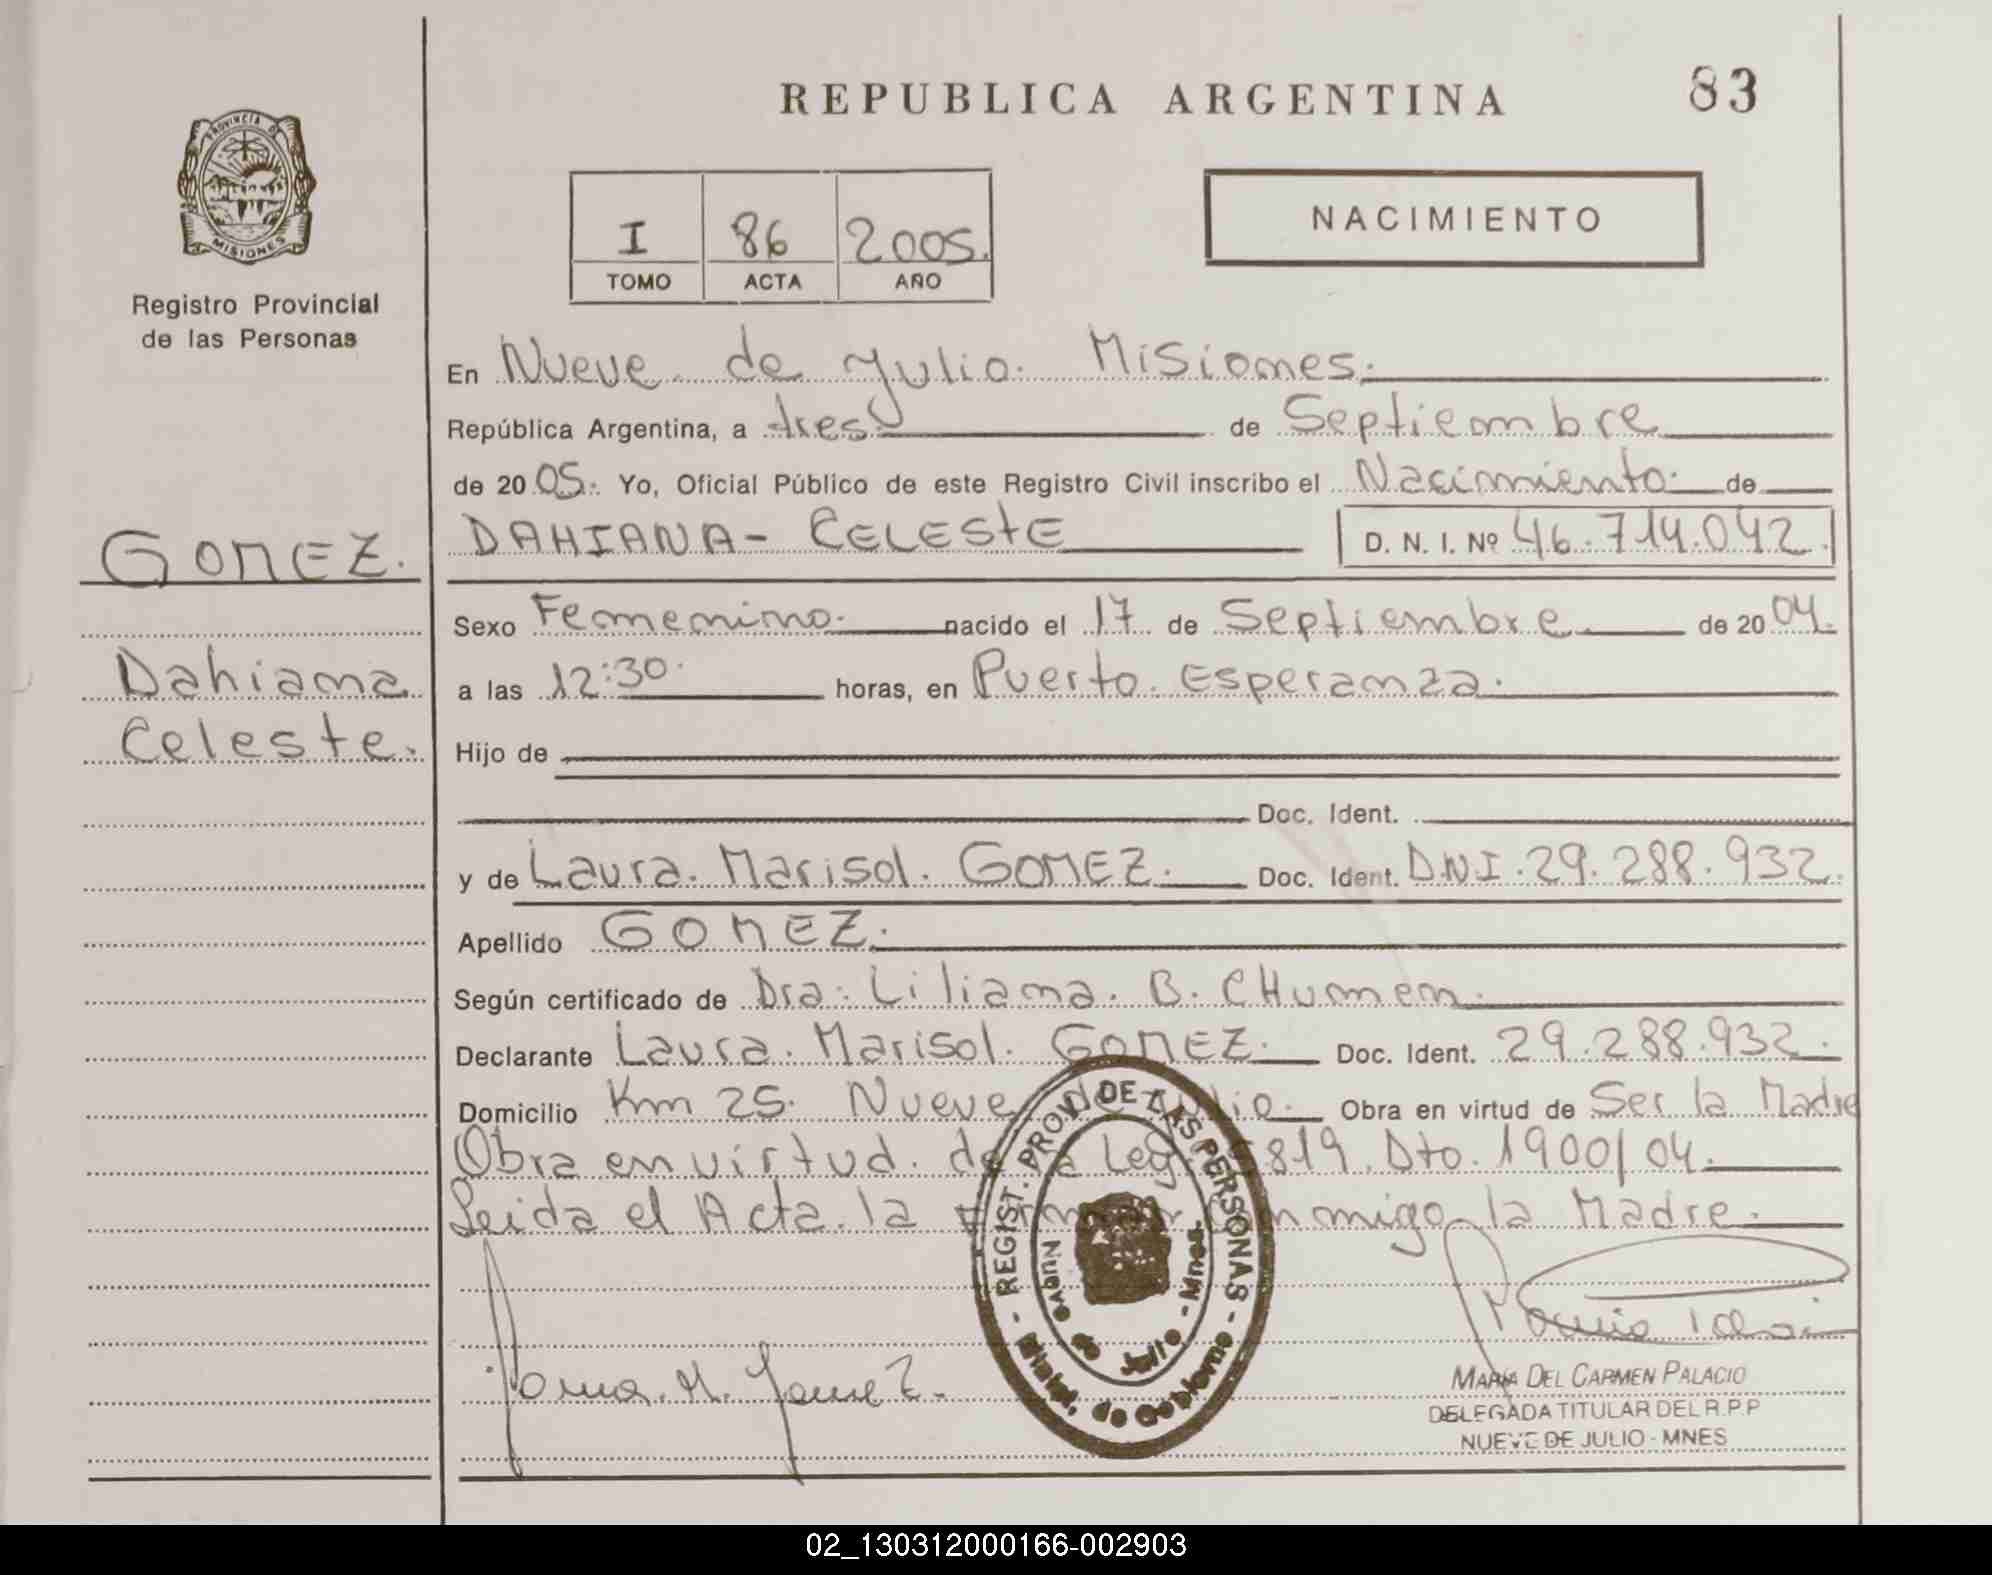 REPUBLICA ARGENTINA
83
PROVINCIA DE
MISIONES
Registro Provincial
de las Personas
I 86 2005.
TOMO ACTA AÑO
NACIMIENTO
En Nueve de Julio. Misiones.
República Argentina, a tres. de Septiembre
de 2005. Yo, Oficial Público de este Registro Civil inscribo el Nacimiento. de
GOMEZ.
DAHIANA- CELESTE D. N. I. Nº 46.714.042.
Sexo Femenino. nacido el 17 de Septiembre de 2004.
Dahiana
a las 12:30. horas, en Puerto. Esperanza.
Celeste.
Hijo de
Doc. Ident.
y de Laura. Marisol. GOMEZ. Doc. Ident. D.N.I. 29.288.932.
Apellido GOMEZ.
Según certificado de Dra. Liliana. B. CHumen.
Declarante Laura. Marisol. GOMEZ. Doc. Ident. 29.288.932.
Domicilio Km 25. Nueve de Julio. Obra en virtud de Ser la Madre
Obra en virtud. de la Ley 819. Dto. 1900/04.
Leida el Acta. la conmigo la Madre.
REGIST. PROV. DE LAS PERSONAS
Nueve de Julio - Mnes.
Minist. de Gobierno
MARIA DEL CARMEN PALACIO
DELEGADA TITULAR DEL R.P.P
NUEVE DE JULIO - MNES
02_130312000166-002903